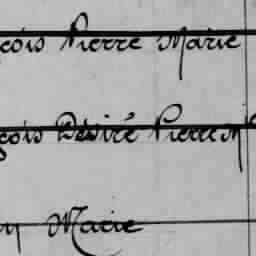 çois Pierre Marie
çois Désiré Pierre M
Marie